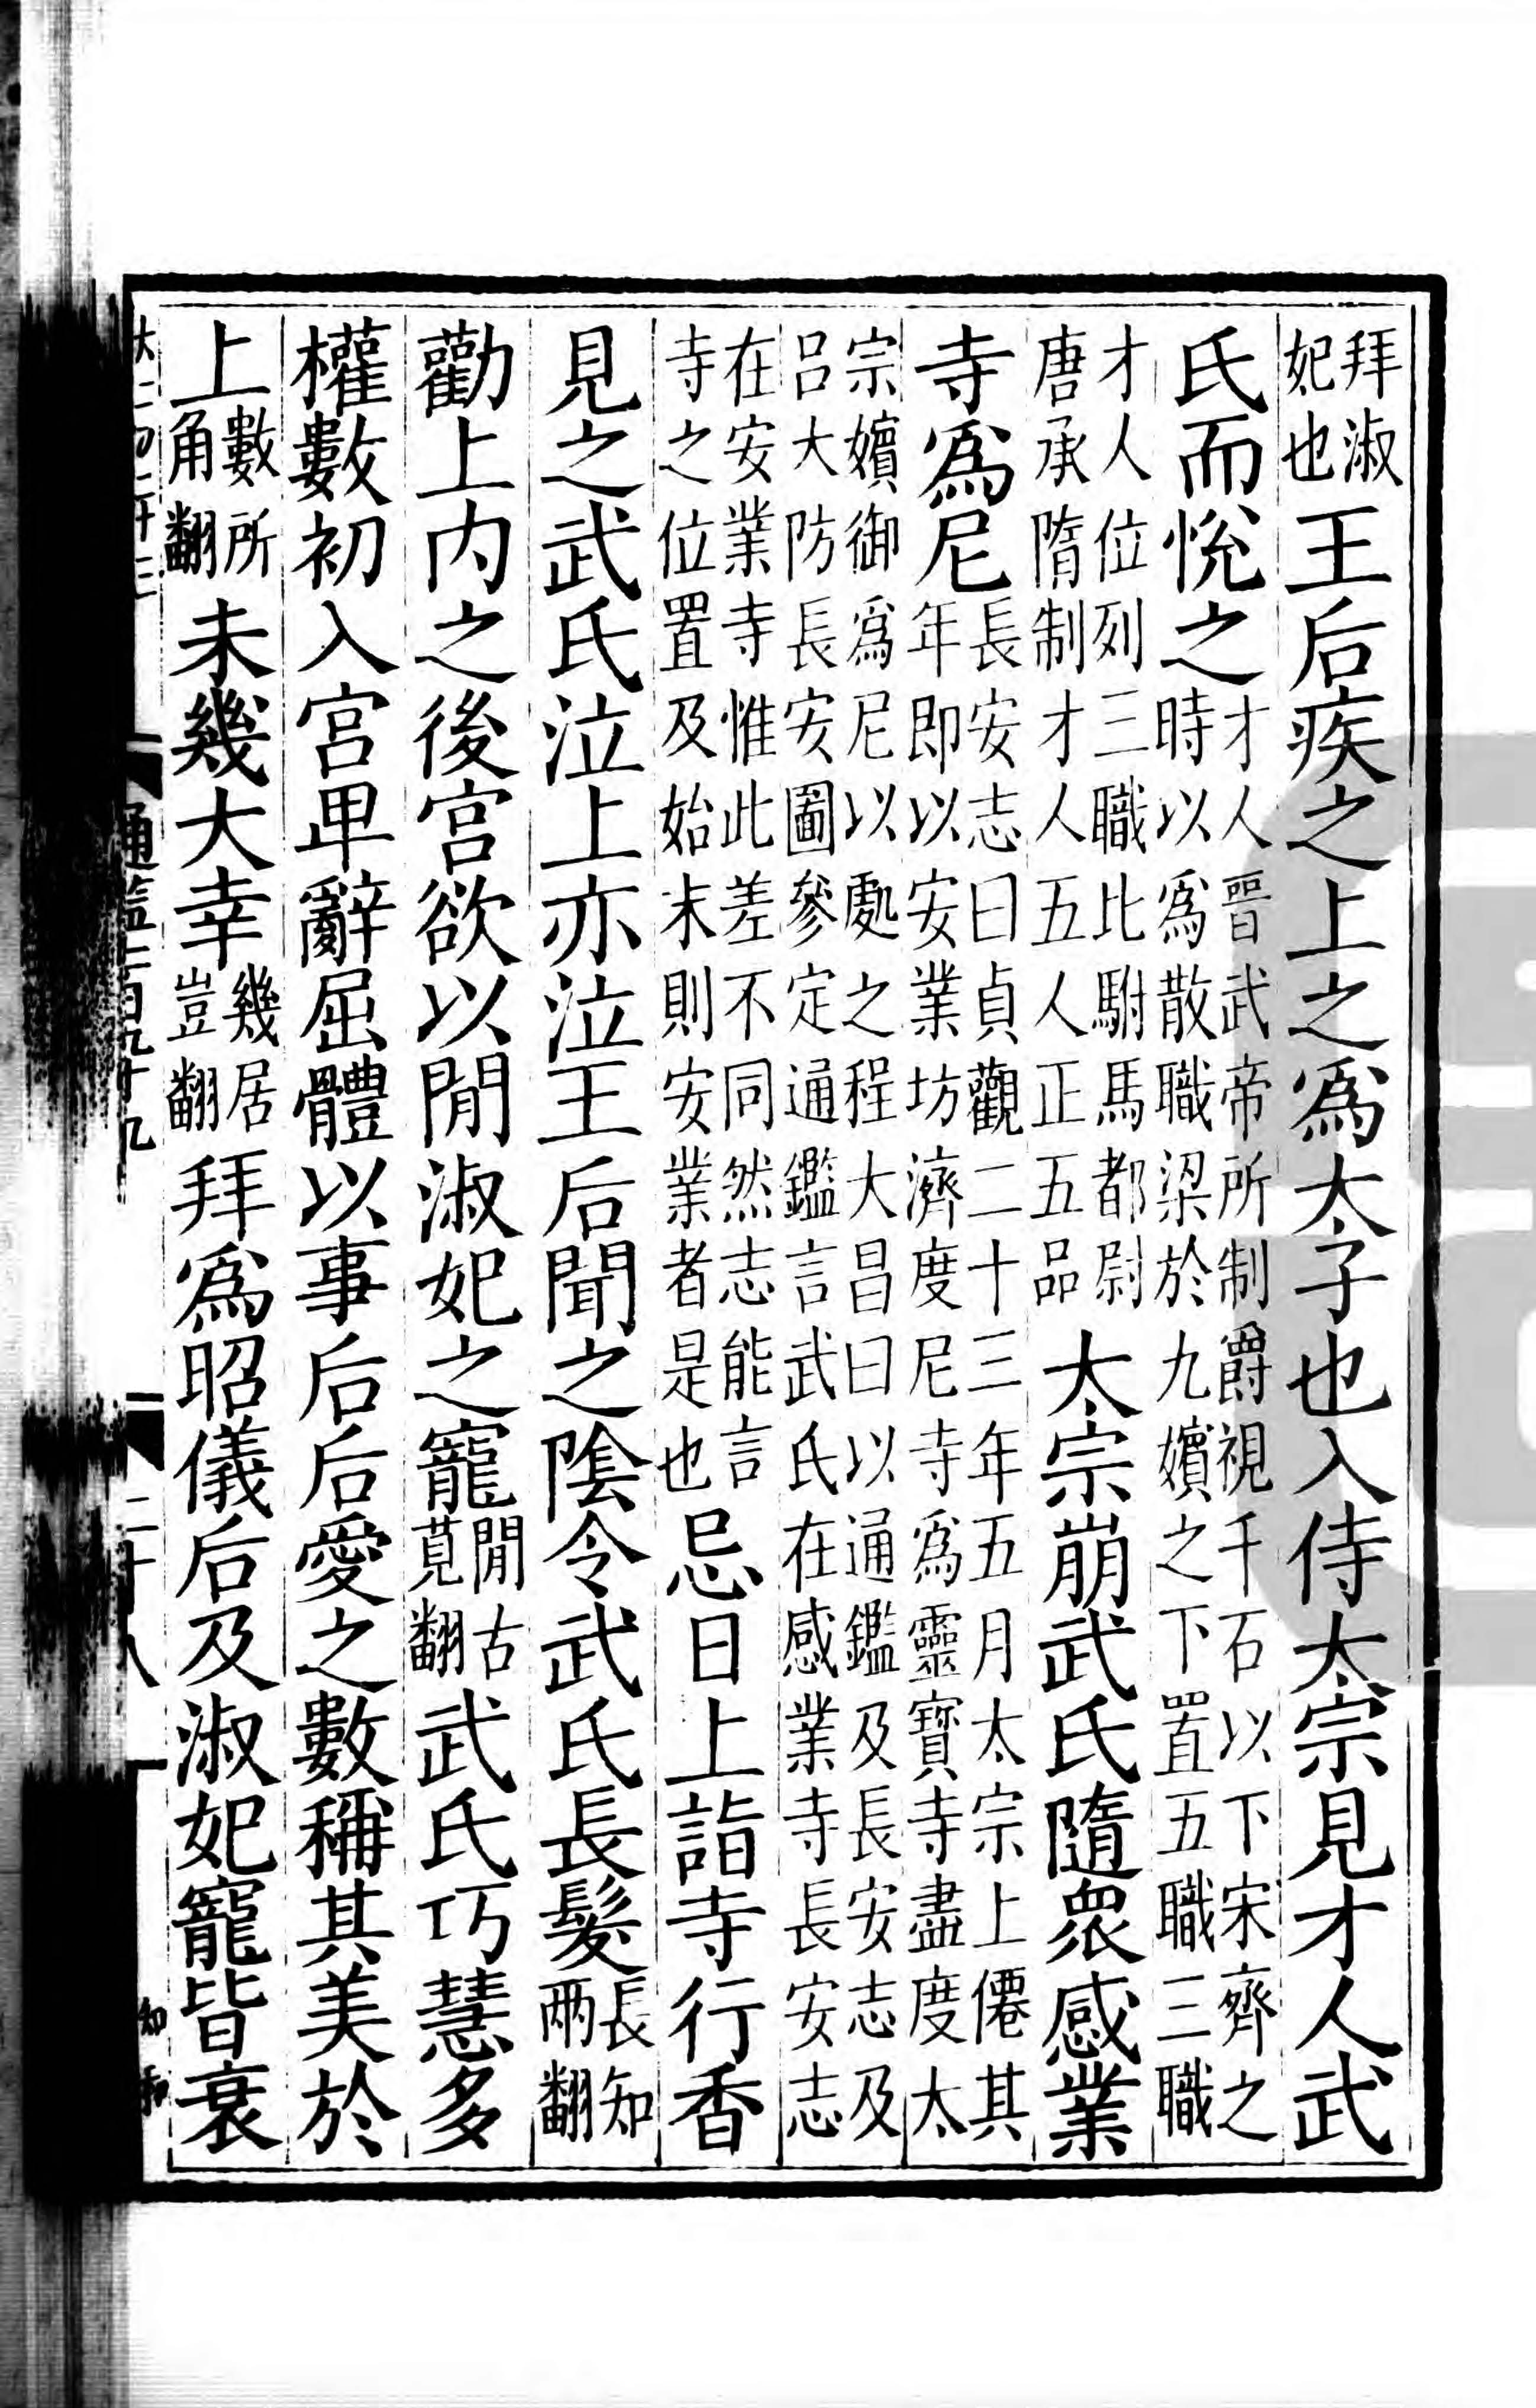 拜淑妃也王后疾之上之爲太子也入侍太宗見才人武
氏而悅之才人晉武帝所制爵視千石以下宋齊之時以爲散職梁於九嬪之下置五職三職
才人位列三職比駙馬都尉唐承隋制才人五人正五品太宗崩武氏隨衆感業
寺爲尼長安志曰貞觀二十三年五月太宗上僊其年即以安業坊濟度尼寺爲靈寶寺盡度太
宗嬪御爲尼以處之程大昌曰以通鑑及長安志及呂大防長安圖參定通鑑言武氏在感業寺長安志
在安業寺惟此差不同然志能言寺之位置及始末則安業者是也忌日上詣寺行香
見之武氏泣上亦泣王后聞之隂令武氏長髮長知兩翻
勸上内之後宮欲以閒淑妃之寵閒古莧翻武氏巧慧多
權數初入宮卑辭屈體以事后后愛之數稱其美於
上數所角翻未幾大幸幾居豈翻拜爲昭儀后及淑妃寵皆衰